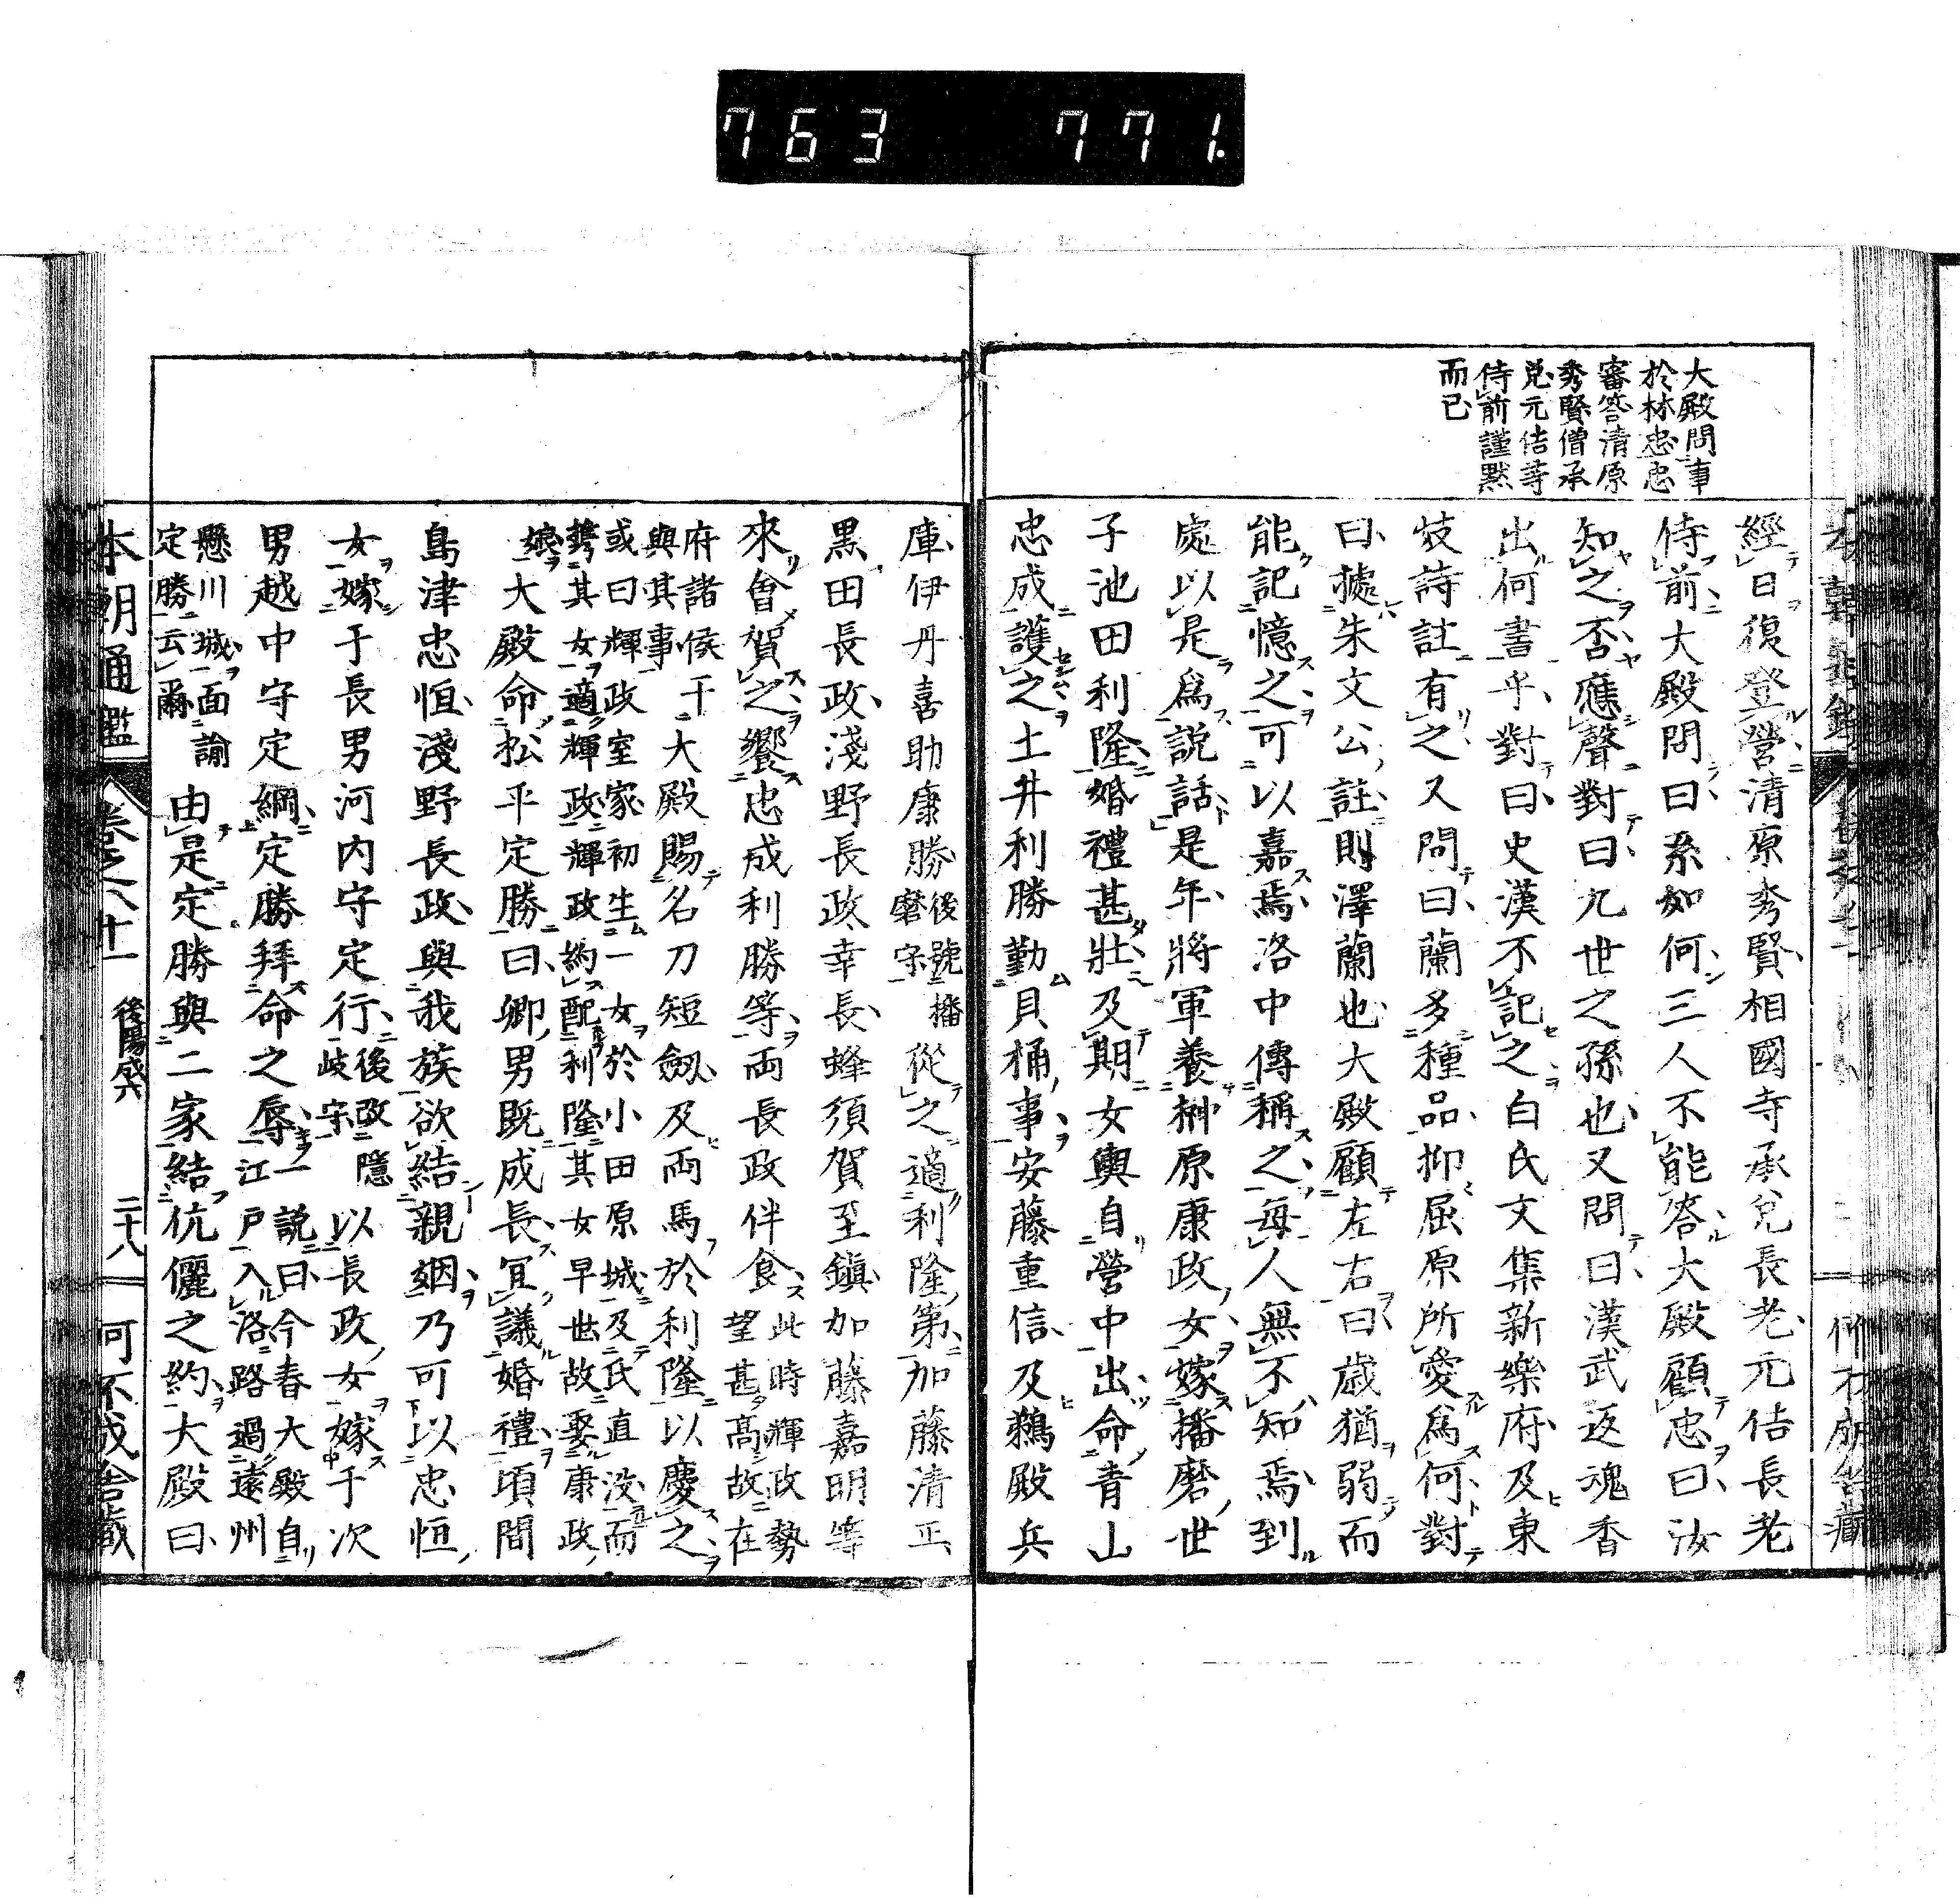 763 771.
大殿問事
於林忠忠
審答清原
秀賢僧承
兌元佶等
侍前謹黙
而已
經日復登營清原秀賢相國寺承兌長老元佶長老
侍前大殿問曰系如何三人不能答大殿顧忠曰汝
知之否應聲對曰九世之孫也又問曰漢武返魂香
出何書乎對曰史漢不記之白氏文集新樂府及東
坡詩註有之又問曰蘭多種品抑屈原所愛爲何對
曰據朱文公註則澤蘭也大殿顧左右曰歳猶弱而
能記憶之可以嘉焉洛中傳稱之毎人無不知焉到
處以是爲說話是年將軍養榊原康政女嫁播磨世
子池田利隆婚禮甚壯及期女輿自營中出命青山
忠成護之土井利勝勤貝桶事安藤重信及鵜殿兵
庫伊丹喜助康勝後號播磨守從之適利隆第加藤清正
黒田長政淺野長政幸長蜂須賀至鎭加藤嘉明等
來會賀之饗忠成利勝等兩長政伴食此時輝政勢望甚高故在
府諸侯與其事于大殿賜名刀短劔及兩馬於利隆以慶之
或曰輝政室家初生一女於小田原城及氏直没而
携其女適輝政輝政約配利隆其女早世故娶康政
娘大殿命松平定勝曰卿男既成長宜議婚禮頃間
島津忠恒淺野長政與我族欲結親姻乃可以忠恒
女嫁于長男河内守定行後改隱岐守以長政女嫁于次
男越中守定綱定勝拜命之辱一說曰今春大殿自江戸入洛路過遠州
懸川城面諭定勝云爾由是定勝與二家結伉儷之約大殿曰
本朝通鑑 卷之八十一 後陽成六 二十八 可不成舎藏